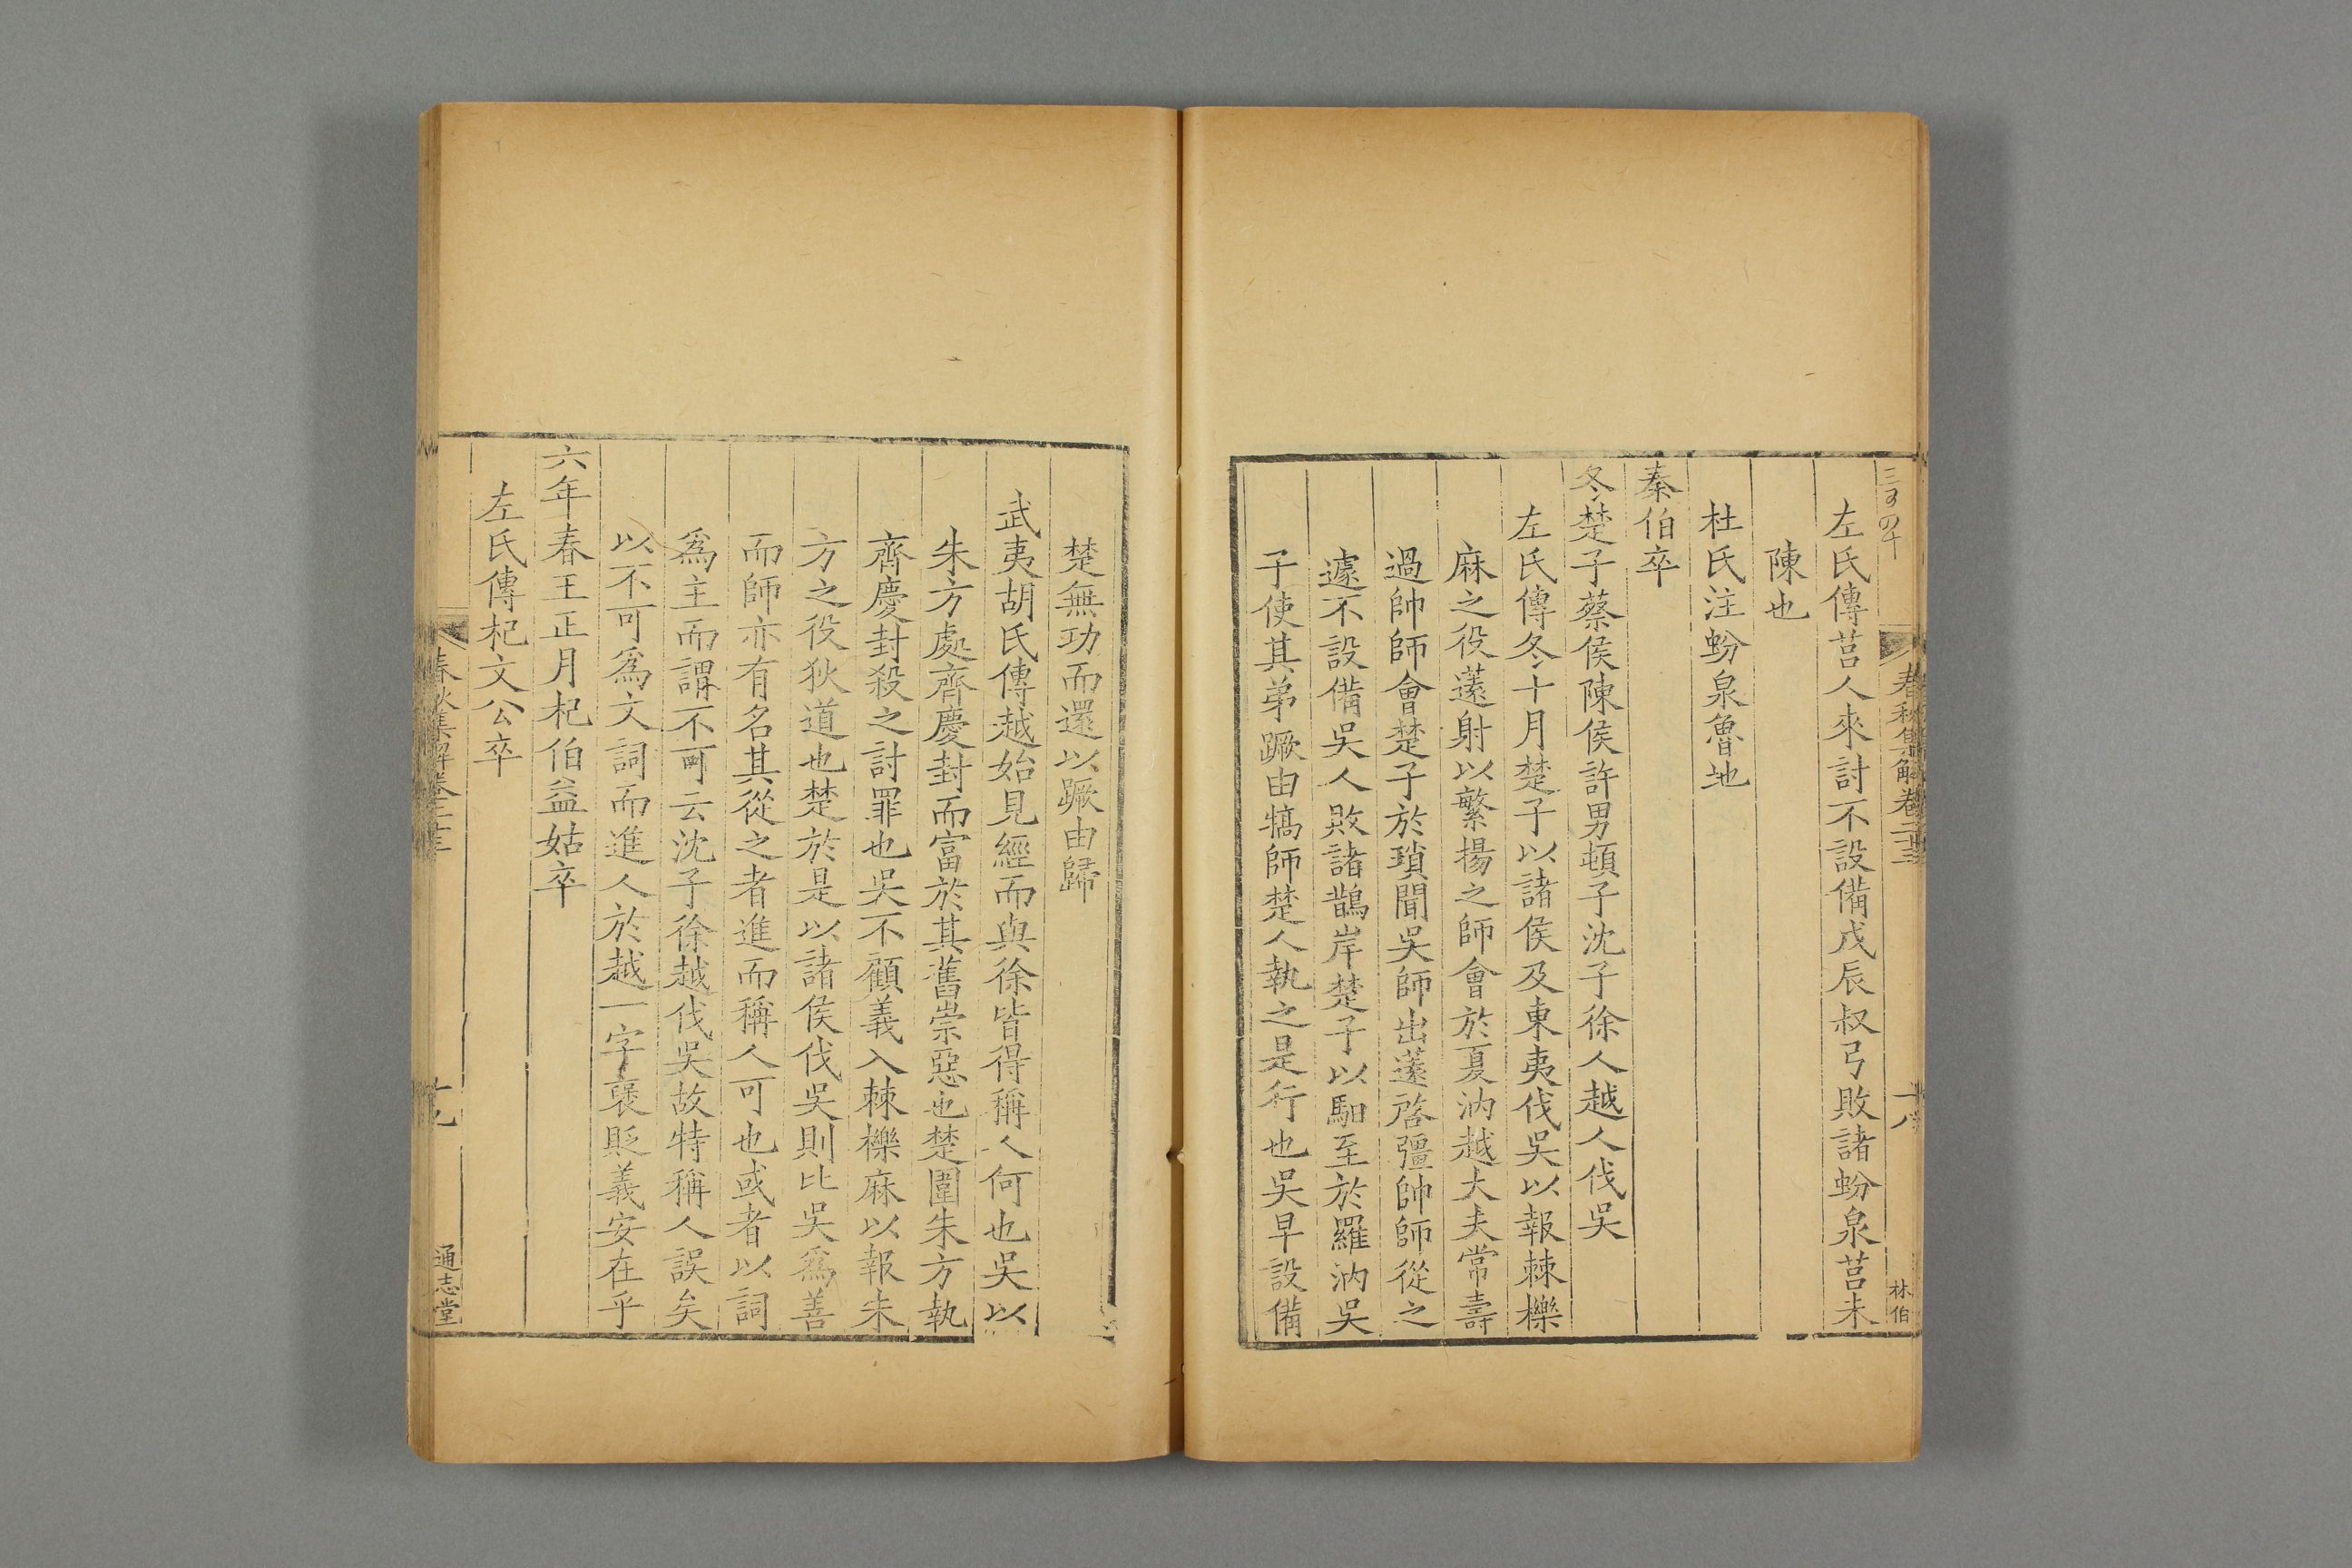 春秋集解卷二十三
十八
林伯
左氏傳莒人來討不設備戊辰叔弓敗諸蚡泉莒未
陳也
杜氏注蚡泉魯地
秦伯卒
冬楚子蔡侯陳侯許男頓子沈子徐人越人伐吳
左氏傳冬十月楚子以諸侯及東夷伐吳以報棘櫟
麻之役薳射以繁揚之師會於夏汭越大夫常壽
過帥師會楚子於瑣聞吳師出薳啓彊帥師從之
遽不設備吳人敗諸鵲岸楚子以馹至於羅汭吳
子使其弟蹶由犒師楚人執之是行也吳早設備
楚無功而還以蹶由歸
武夷胡氏傳越始見經而與徐皆得稱人何也吳以
朱方處齊慶封而富於其舊崇惡也楚圍朱方執
齊慶封殺之討罪也吳不顧義入棘櫟麻以報朱
方之役狄道也楚於是以諸侯伐吳則比吳爲善
而師亦有名其從之者進而稱人可也或者以詞
爲主而謂不可云沈子徐越伐吳故特稱人誤矣
以不可爲文詞而進人於越一字褒貶義安在乎
六年春王正月杞伯益姑卒
左氏傳杞文公卒
春秋集解卷二十三
十九
通志堂